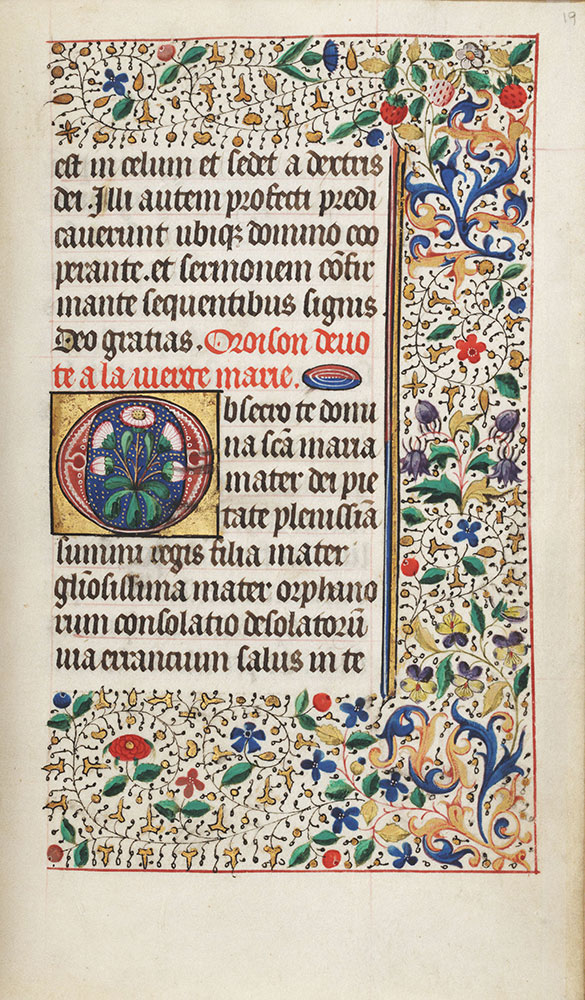 19
est in celum et sedet a dextris
dei. Illi autem profecti predi
cauerunt ubiqꝫ domino coo
perante. et sermonem cōfir
mante sequentibus signis.
Deo gratias. Oroison deuo
te a la vierge marie.
Obsecro te domi
na scā maria
mater dei pie
tate plenissīa
summi regis filia mater
gliōsissima mater orphano
rum consolatio desolatorū
uia errancium salus in te